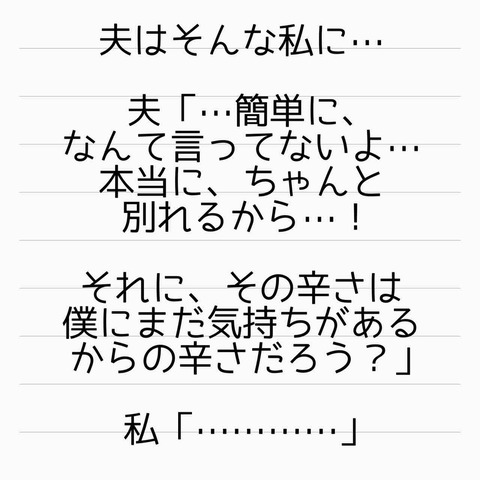 夫はそんな私に…
夫「…簡単に、
なんて言ってないよ…
本当に、ちゃんと
別れるから…！
それに、その辛さは
僕にまだ気持ちがある
からの辛さだろう？」
私「…………」